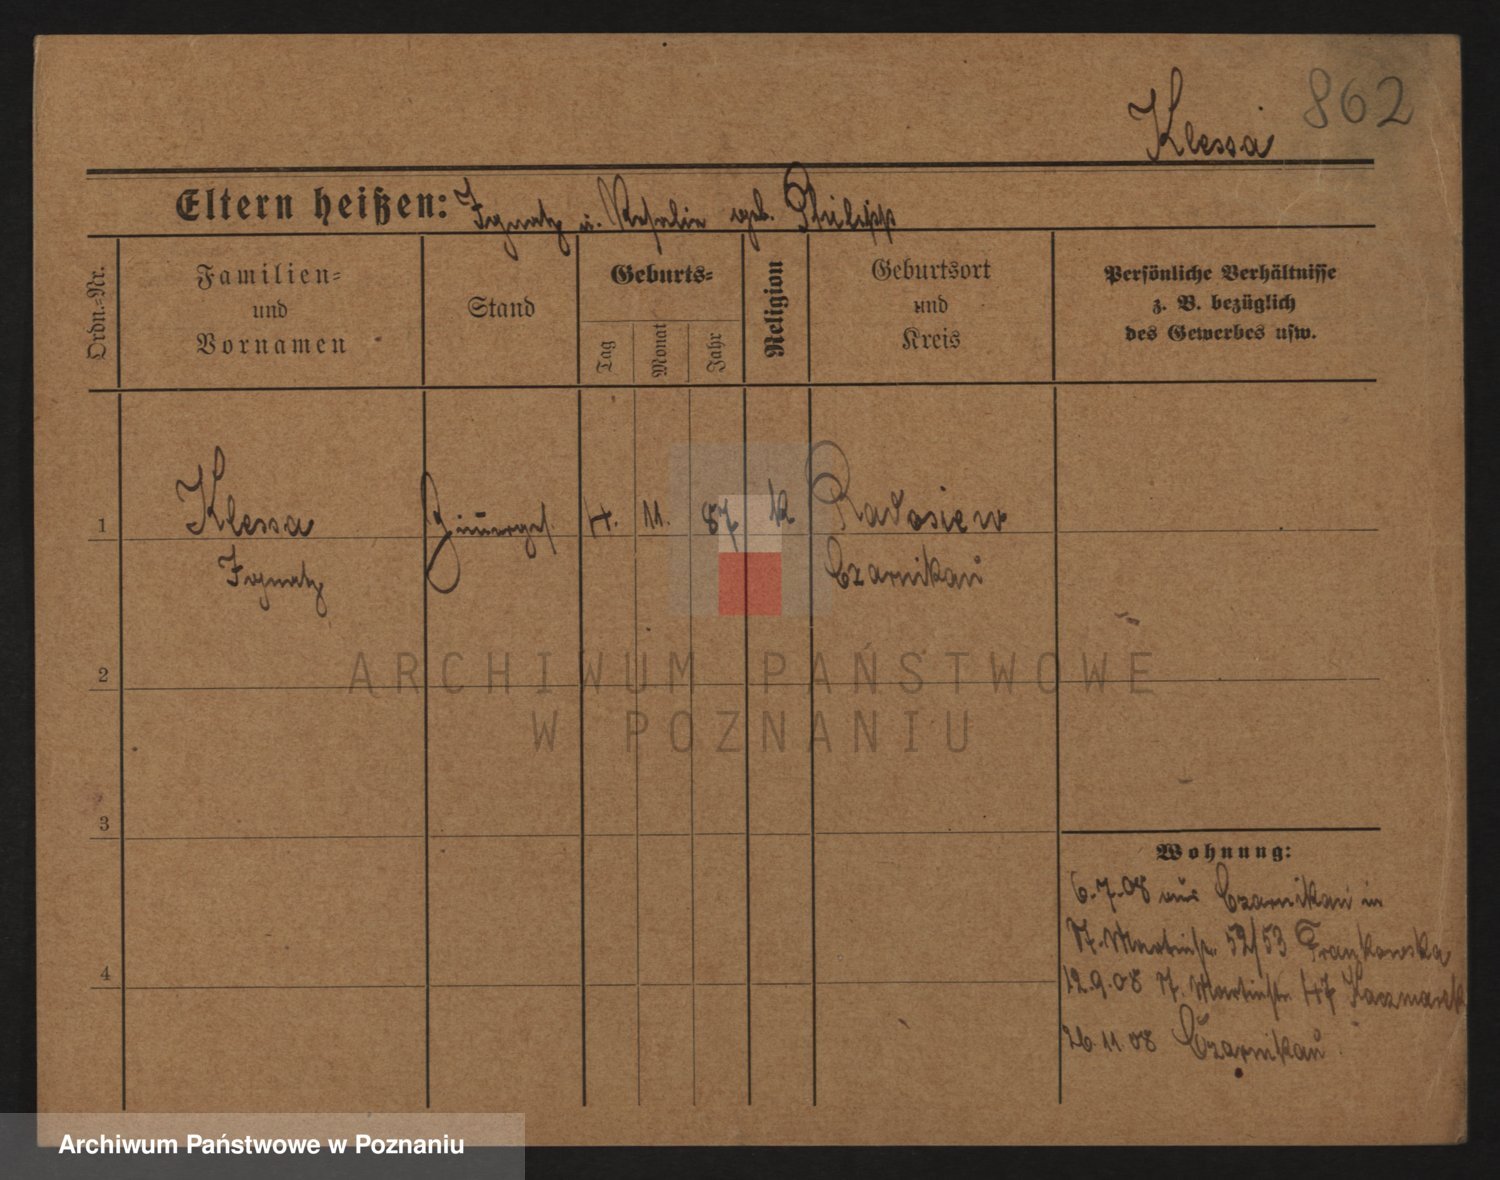 862
Klessa
Eltern heißen: Ignatz u. Rosalie geb. Philipp
Ordn.-Nr.
Familien-
und
Vornamen
Stand
Geburts-
Tag
Monat
Jahr
Religion
Geburtsort
und
Kreis
Persönliche Verhältnisse
z. B. bezüglich
des Gewerbes usw.
1
Klessa
Ignatz
Zimergs.
4. 11. 87
k
Radosiew
Czarnikau
2
3
4
Wohnung:
6.7.08 aus Czarnikau in
St. Martinstr. 52/53 Frankowska
12.9.08 St. Martinstr. 47 Kaczmarek
26.11.08 Czarnikau
ARCHIWUM PAŃSTWOWE
W POZNANIU
Archiwum Państwowe w Poznaniu